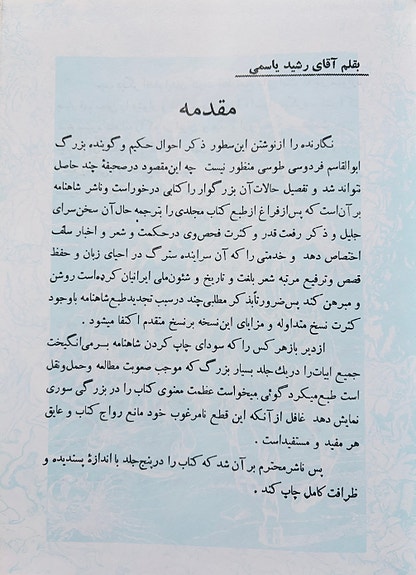 بقلم آقای رشید یاسمی
مقدمه
نگارنده را ازنوشتن این سطور ذکر احوال حکیم و گوینده بزرگ
ابوالقاسم فردوسی طوسی منظور نیست چه این مقصود درصحیفهٔ چند حاصل
نتواند شد و تفصیل حالات آن بزرگوار را کتابی درخور است و ناشر شاهنامه
بر آن است که پس از فراغ از طبع کتاب مجلدی را بترجمه حال آن سخن سرای
جلیل و ذکر رفعت قدر و کثرت فحص وی درحکمت و شعر و اخبار سلف
اختصاص دهد و خدمتی را که آن سراینده سترگ در احیای زبان و حفظ
قصص و ترفیع مرتبه شعر بلغت و تاریخ و شئون ملی ایرانیان کرده است روشن
و مبرهن کند پس ضرورتاً بذکر مطلبی چند درسبب تجدید طبع شاهنامه باوجود
کثرت نسخ متداوله و مزایای این نسخه برنسخ متقدم اکتفا میشود .
از دیر باز هر کس را که سودای چاپ کردن شاهنامه بر می‌انگیخت
جمیع ابیات را دریك جلد بسیار بزرگ که موجب صعوبت مطالعه وحمل ونقل
است طبع میکرد گوئی میخواست عظمت معنوی کتاب را در بزرگی سوری
نمایش دهد غافل از آنکه این قطع نامرغوب خود مانع رواج کتاب و عایق
هر مفید و مستفید است .
پس ناشر محترم بر آن شد که کتاب را در پنج جلد با اندازهٔ پسندیده و
ظرافت کامل چاپ کند .